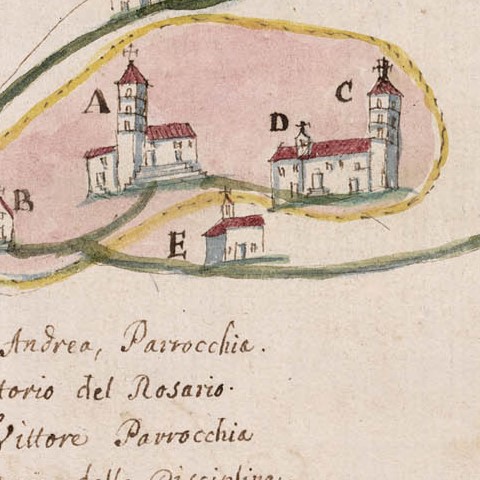 A
C
D
B
E
Andrea, Parrocchia.
torio del Rosario.
Vittore Parrocchia
della Disciplina.